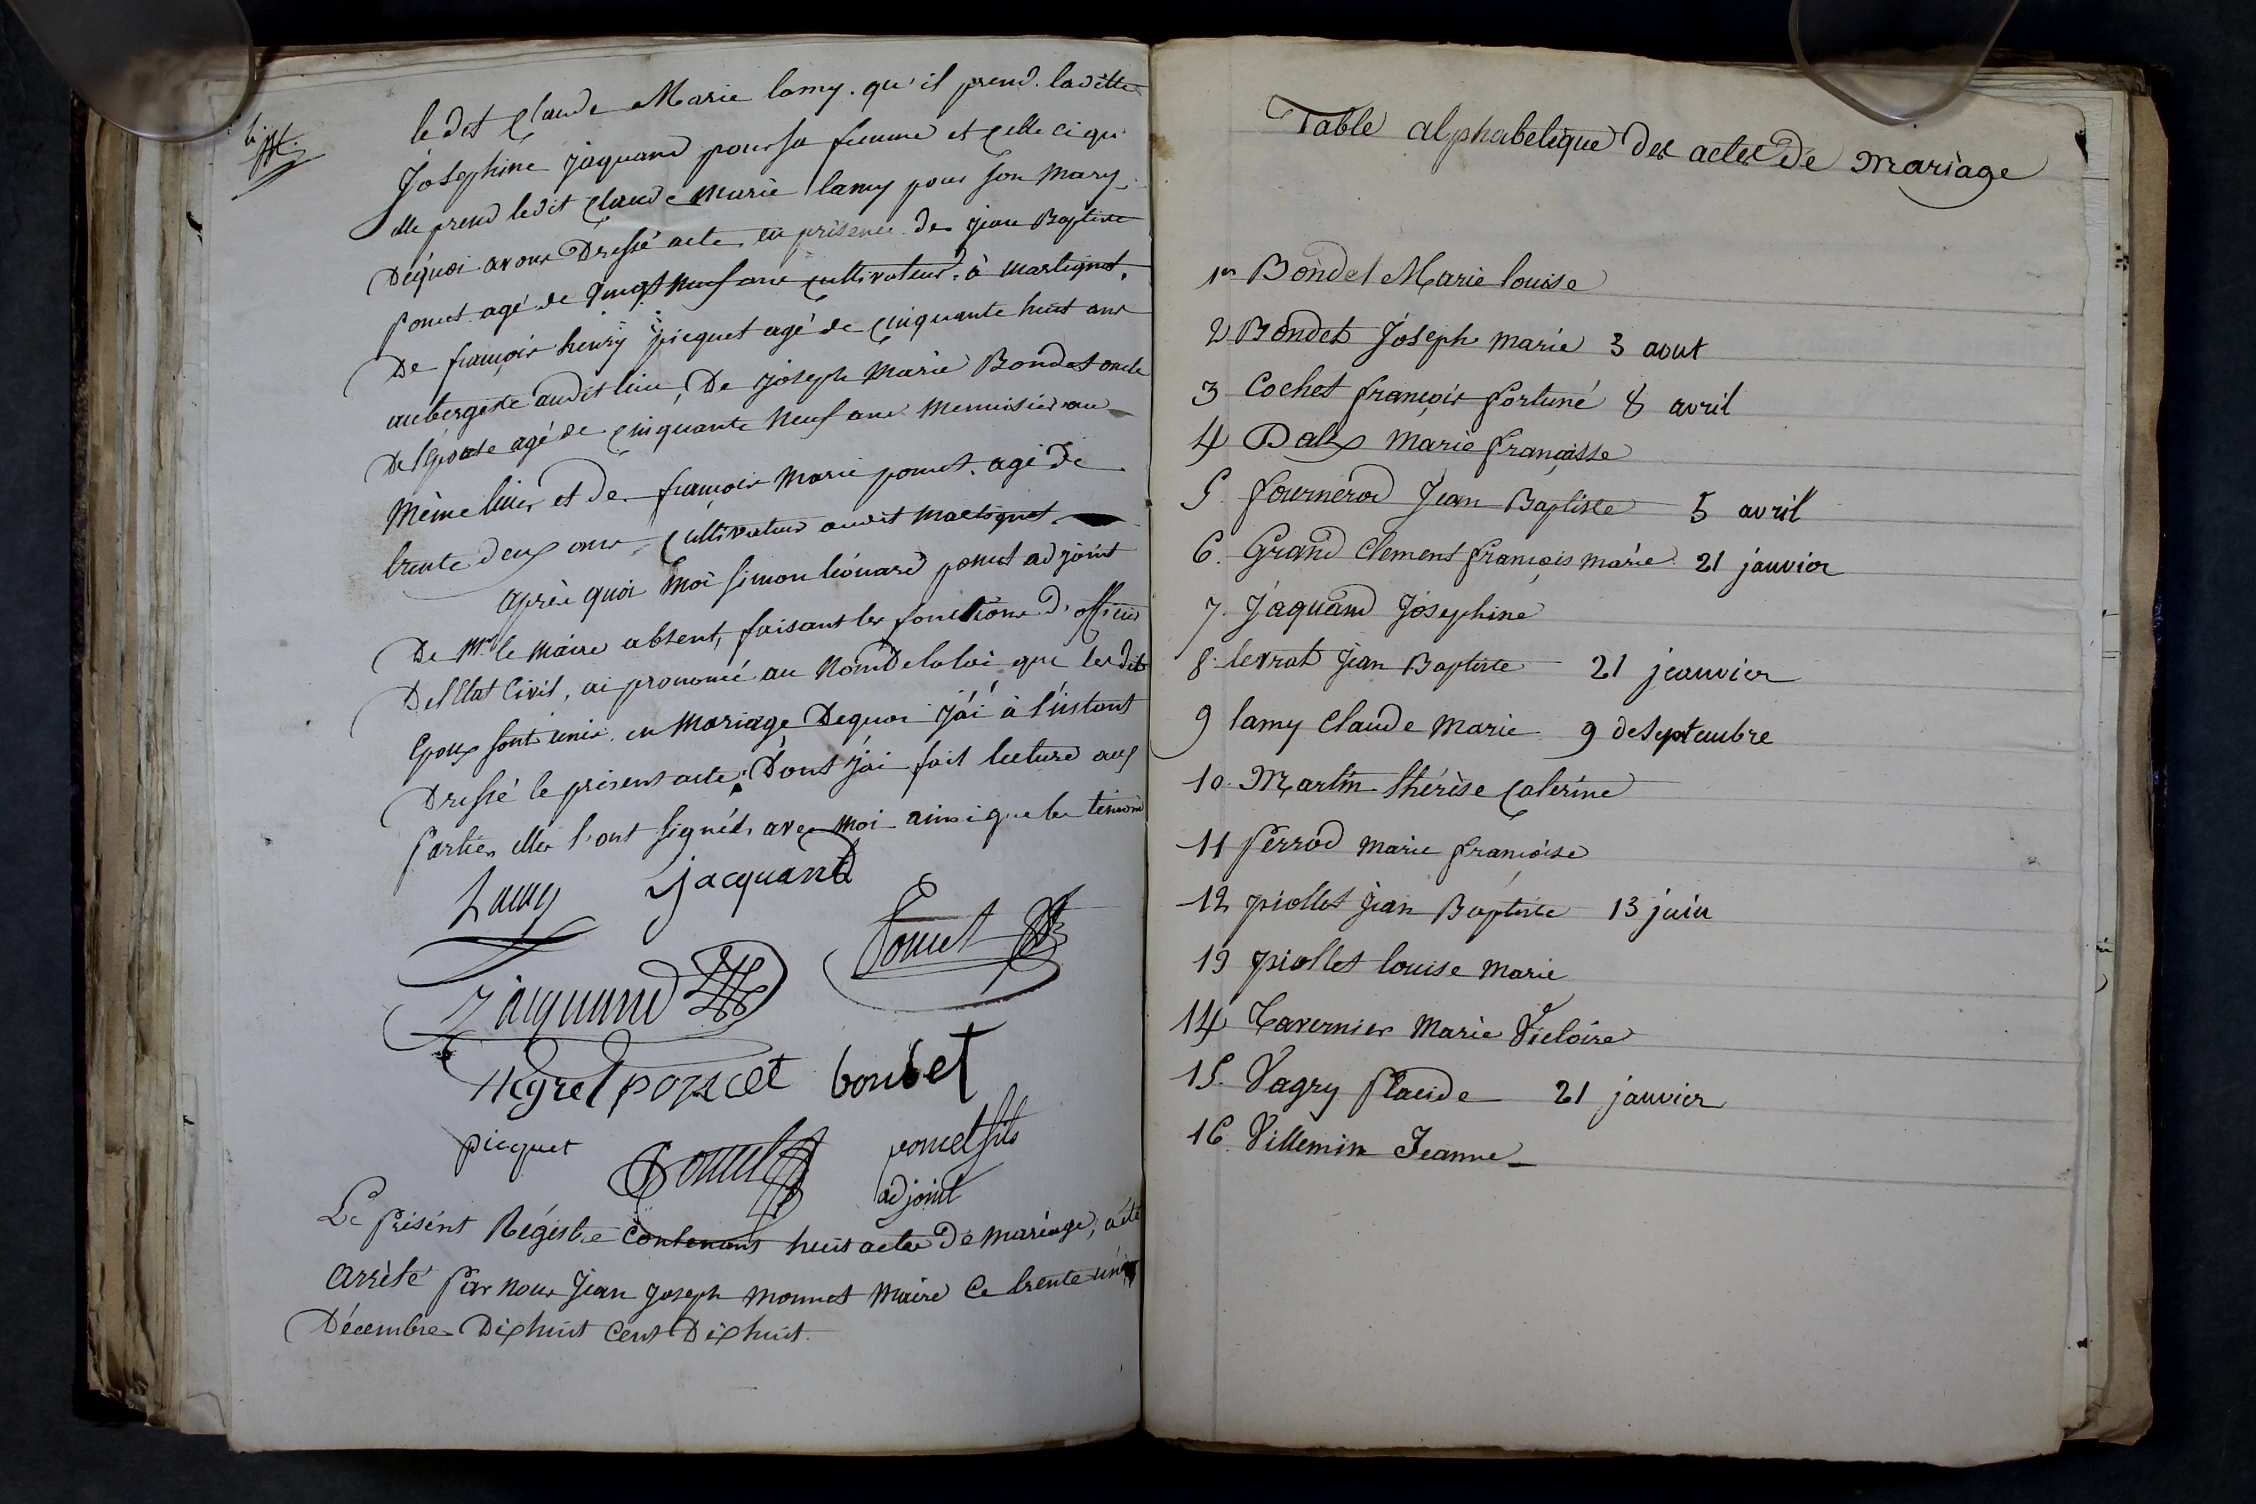 ledit Claude Marie lamy. qu'il prend ladite
Joséphine jaquand pour sa femme et celle ci qu'
elle prend ledit Claude Marie lamy pour son Mary,
Dequoi avons Dressé acte en présence de jean Baptiste
ponut agé de vingt neuf ans cultivateur à Martignat,
De françois henry picquet agé de cinquante huit ans
aubergiste audit lieu, De joseph Marie Bondet oncle
De l'épouse agé de cinquante Neuf ans Menuisier au
Même lieu, et de françois Marie poncet agé de
trente deux ans, Cultivateur audit Martignat
après quoi Moi simon léonard poncet adjoint
De Mr. le Maire absent, faisant les fonctions d'officier
De l'Etat Civil, ai prononcé au Nom De la loi que lesdits
époux sont unis en Mariage Dequoi j'ai à l'instant
Dressé le présent acte, Dont j'ai fait lecture aux
parties, elles l'ont signés, avec Moi ainsi que les témoins
Lamy jacquand
Poncet
jacquand
bondet
picquet Poncet poncet fils
adjoint
Le présent Régistre Contenant huit actes De Mariage, a été
Arrèté par Nous Jean Joseph Monnet Maire Ce trente un
Décembre Dix huit Cent Dix huit.
Table alphabetique Des actes De Mariage
1er Bondet Marie louise
2 Bondet Joseph Marie 3 aout
3 Cochet françois fortuné 8 avril
4 Dalx Marie françoisse
5. fournerod Jean Baptiste 5 avril
6. Grand Clement françois Marie 21 janvier
7. Jaquand Josephine
8. levrat Jean Baptiste 21 jeanvier
9 lamy Claude Marie 9 de Septembre
10. Martin thérèse Caterine
11 Perrod Marie françoise
12 piollet jean Baptiste 13 juin
13 piollet louise Marie
14 Tavernier Marie Victoire
15. Vagry placide 21 janvier
16. Villemin Jeanne